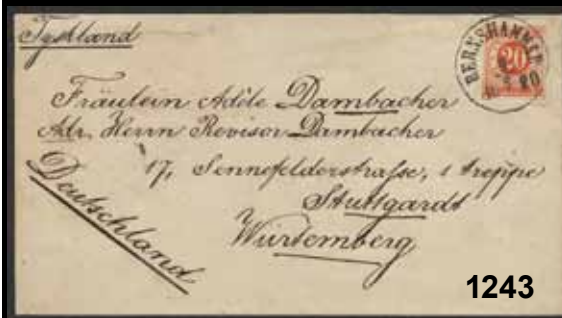 Tyskland
BERNSHAMMAR
20
80
Fräulein Adèle Dambacher
Adr. Herrn Revisor Dambacher
17, Sennefelderstrafse, 1 treppe
Stuttgardt
Würtemberg
Deutschland
1243